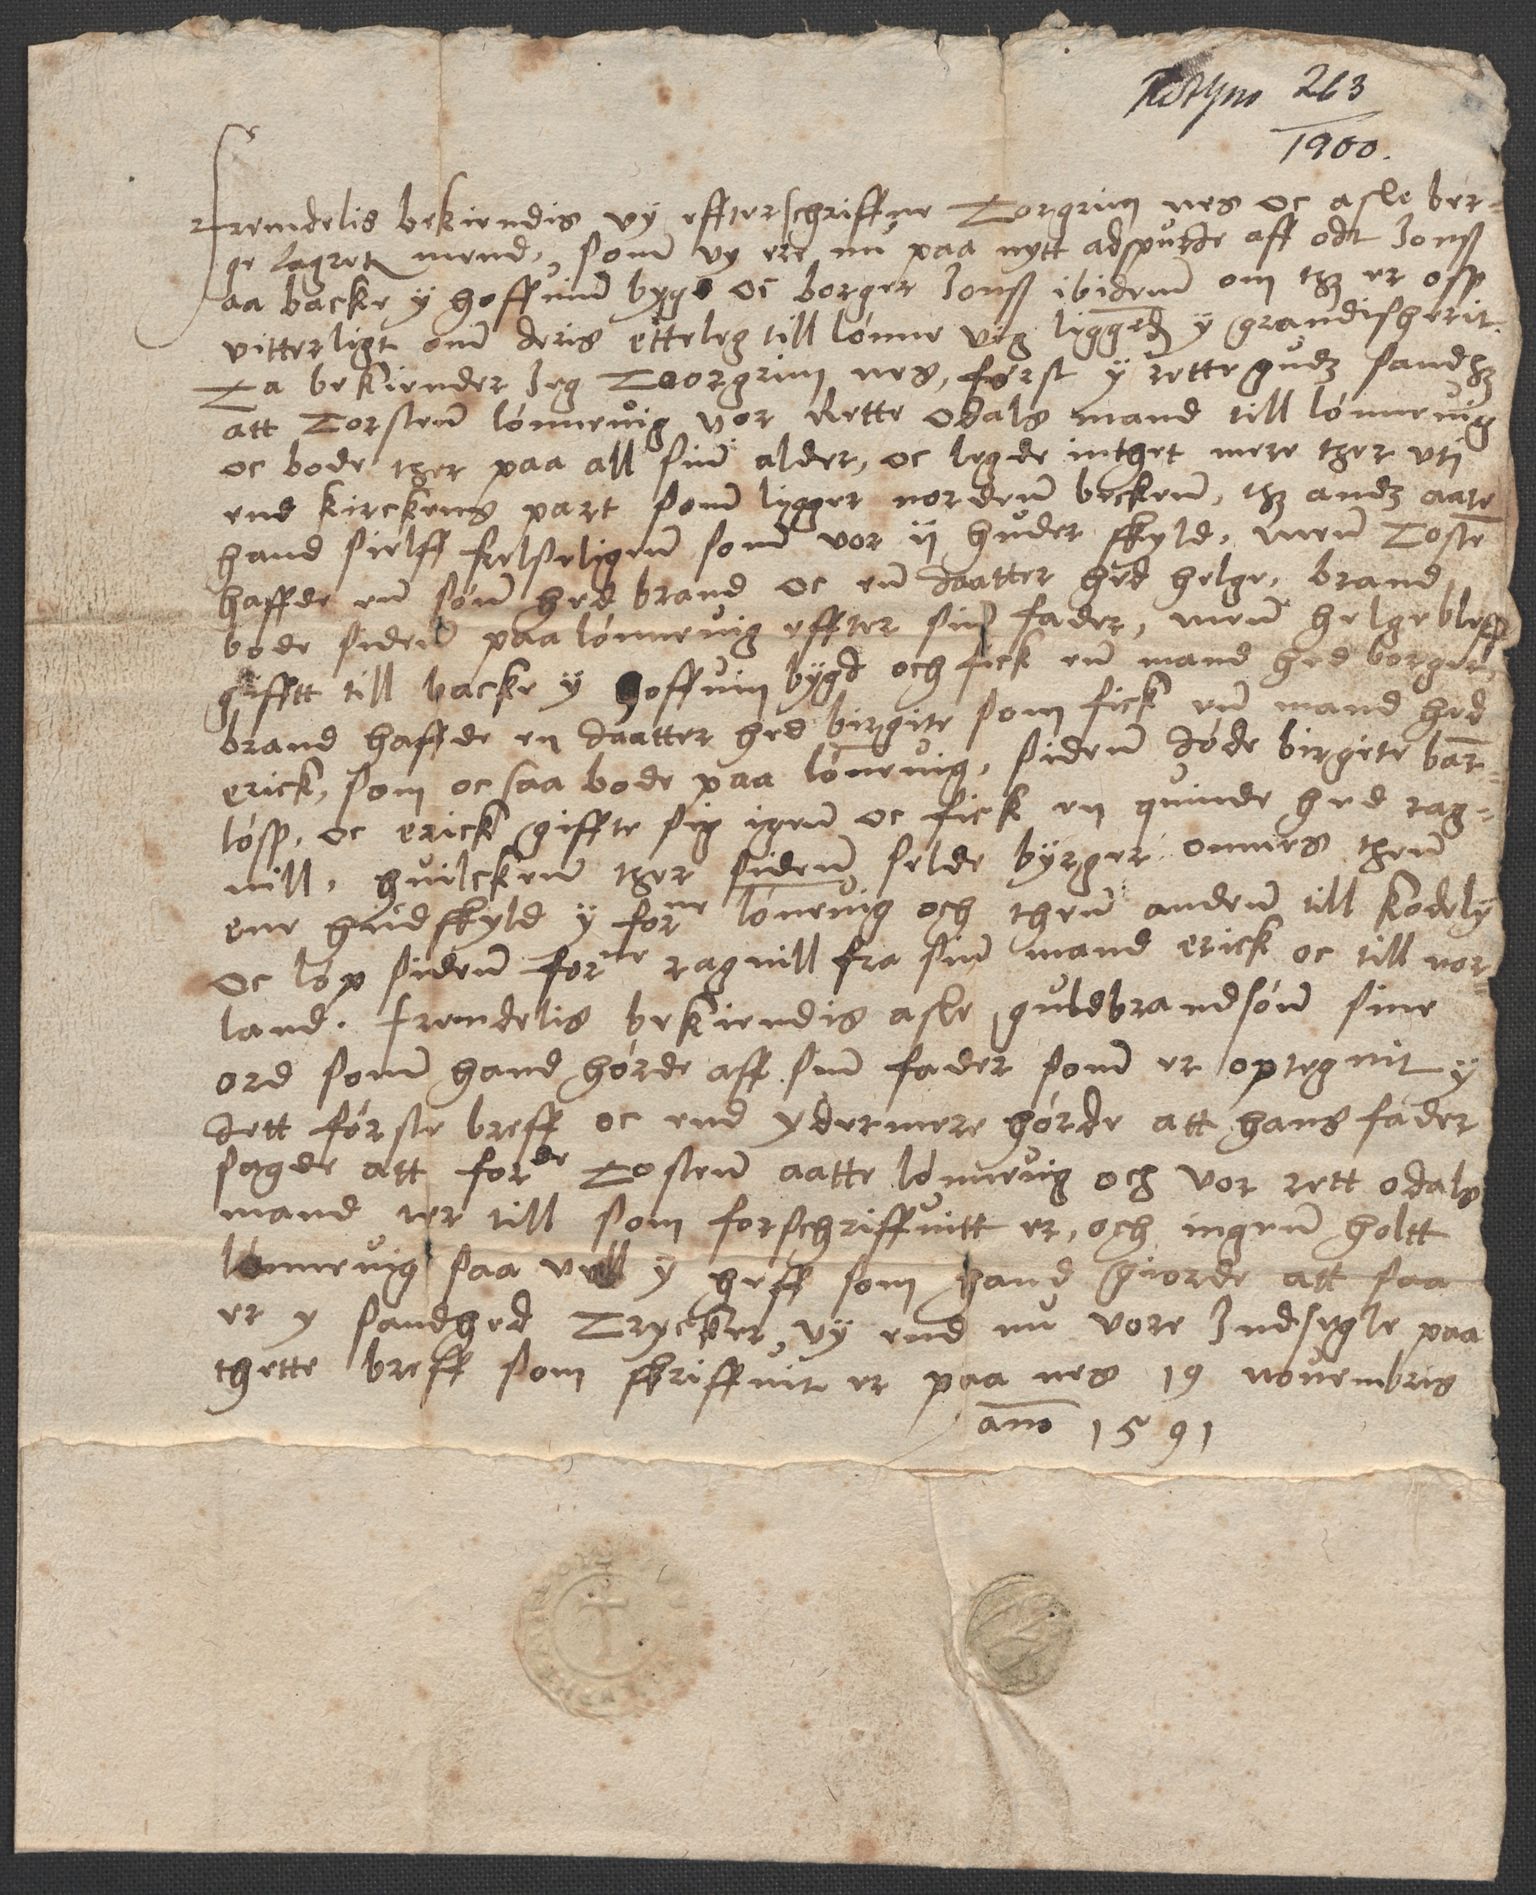 263
1900.
Fremdelis bekiendis vÿ effterschriffne Torgrim nes oc asle ber-
ge lagret mend, som vy ere nu paa nytt adspurde aff odt Jonß
aa backe ÿ hoffuin bygd oc borger Jonß ibidem om thz er oss
vitterligt om deris etteleg till lónne vig liggend ÿ grandisherit.
Ta bekiender Jeg Torgrim nes, först ÿ rette gudz sandhz
att Torsten lónnevig vor Rette odals mand till lónnevig
oc bode ther paa all sin alder, oc legde inthet mere ther vti
end kirckens part som ligger norden becken, thz andz aatte
hand sielff frelseligen som vor ij huder skyld, men Toste
haffde en són hed brand oc en daatter hed helge, brand
bode siden paa lónnevig effter sin fader, men helge bleff
gifftt till backe ÿ hoffuin bÿgd och fick en mand hed borger,
brand haffde en daatter hed birgite som fick en mand hed
erick, som oc saa bode paa lónevig, siden dóde birgite bar-
lóss, oc erick giffte sig igen oc fick en quinde hed rag-
nill, huilcken ther siden selde bÿrger omnes then
ene hudskyld ÿ forne lónevig och then anden till kodelÿ
oc lóp siden forne ragnill fra sin mand erick oc till nor-
land. fremdelis bekiendis asle guldbrandsón sine
ord som hand hórde aff sin fader som er optegnit y
dett fórste breff oc end ydermere hórde att hans fader
sagde att forde Tosten aatte lónnevig och vor rett odals
mand ter till som forschriffuitt er, och ingen holtt
lónnevig saa vell y heff som hand giorde att saa
er y sandhed Trycker vÿ end nu vore Indsegle paa
thette breff som skriffuit er paa nes 19 novembris
ano 1591